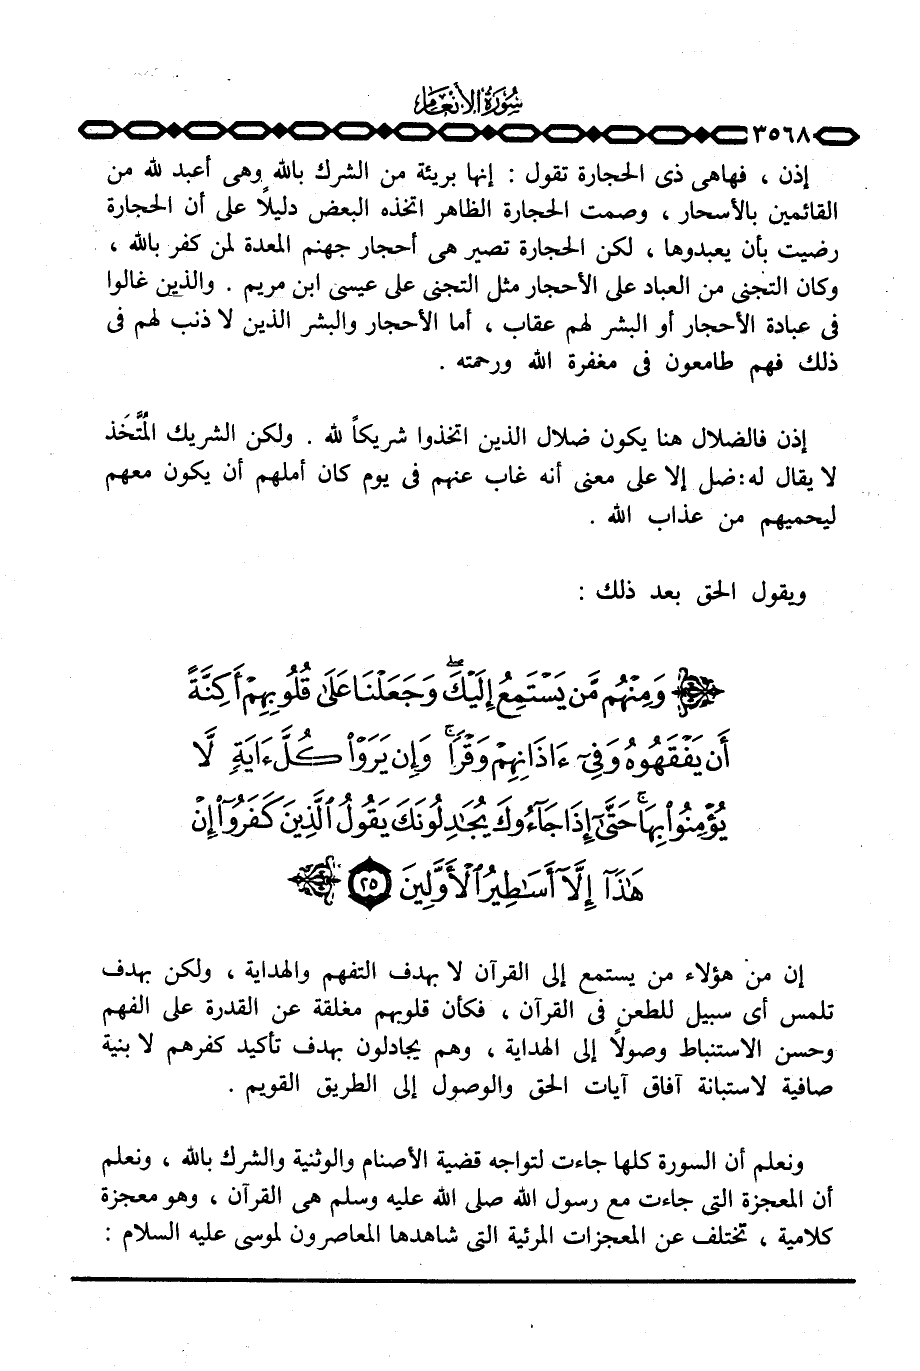 سورة الأنعام
٣٥٦٨
إذن ، فهاهى ذى الحجارة تقول : إنها بريئة من الشرك بالله وهى أعبد لله من
القائمين بالأسحار ، وصمت الحجارة الظاهر اتخذه البعض دليلاً على أن الحجارة
رضيت بأن يعبدوها ، لكن الحجارة تصير هى أحجار جهنم المعدة لمن كفر بالله ،
وكان التجنى من العباد على الأحجار مثل التجنى على عيسى ابن مريم . والذين غالوا
فى عبادة الأحجار أو البشر لهم عقاب ، أما الأحجار والبشر الذين لا ذنب لهم فى
ذلك فهم طامعون فى مغفرة الله ورحمته .
إذن فالضلال هنا يكون ضلال الذين اتخذوا شريكاً لله . ولكن الشريك المُتَّخَذ
لا يقال له : ضل إلا على معنى أنه غاب عنهم فى يوم كان أملهم أن يكون معهم
ليحميهم من عذاب الله .
ويقول الحق بعد ذلك :
وَمِنْهُم مَّن يَسْتَمِعُ إِلَيْكَ ۖ وَجَعَلْنَا عَلَىٰ قُلُوبِهِمْ أَكِنَّةً
أَن يَفْقَهُوهُ وَفِىٓ ءَاذَانِهِمْ وَقْرًا ۚ وَإِن يَرَوْا۟ كُلَّ ءَايَةٍ لَّا
يُؤْمِنُوا۟ بِهَا ۚ حَتَّىٰٓ إِذَا جَآءُوكَ يُجَٰدِلُونَكَ يَقُولُ ٱلَّذِينَ كَفَرُوٓا۟ إِنْ
هَٰذَآ إِلَّآ أَسَٰطِيرُ ٱلْأَوَّلِينَ ٢٥
إن من هؤلاء من يستمع إلى القرآن لا بهدف التفهم والهداية ، ولكن بهدف
تلمس أى سبيل للطعن فى القرآن ، فكأن قلوبهم مغلقة عن القدرة على الفهم
وحسن الاستنباط وصولاً إلى الهداية ، وهم يجادلون بهدف تأكيد كفرهم لا بنية
صافية لاستبانة آفاق آيات الحق والوصول إلى الطريق القويم .
ونعلم أن السورة كلها جاءت لتواجه قضية الأصنام والوثنية والشرك بالله ، ونعلم
أن المعجزة التى جاءت مع رسول الله صلى الله عليه وسلم هى القرآن ، وهو معجزة
كلامية ، تختلف عن المعجزات المرئية التى شاهدها المعاصرون لموسى عليه السلام :